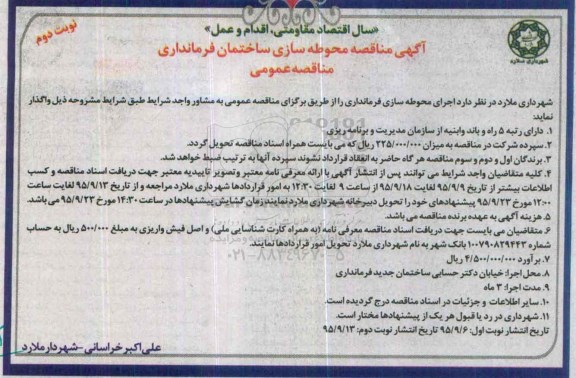 «سال اقتصاد مقاومتی، اقدام و عمل»
نوبت دوم
آگهی مناقصه محوطه سازی ساختمان فرمانداری
مناقصه عمومی
شهرداری ملارد
شهرداری ملارد در نظر دارد اجرای محوطه سازی فرمانداری را از طریق برگزای مناقصه عمومی به مشاور واجد شرایط طبق شرایط مشروحه ذیل واگذار
نماید:
۱. دارای رتبه ۵ راه و باند وابنیه از سازمان مدیریت و برنامه ریزی
۲. سپرده شرکت در مناقصه به میزان ۲۲۵/۰۰۰/۰۰۰ ریال که می بایست همراه اسناد مناقصه تحویل گردد.
۳. برندگان اول و دوم و سوم مناقصه هر گاه حاضر به انعقاد قرارداد نشوند سپرده آنها به ترتیب ضبط خواهد شد.
۴. کلیه متقاضیان واجد شرایط می توانند پس از انتشار آگهی با ارائه معرفی نامه معتبر وتصویر تاییدیه معتبر جهت دریافت اسناد مناقصه و کسب
اطلاعات بیشتر از تاریخ ۹۵/۹/۹ لغایت ۹۵/۹/۱۸ از ساعت ۹ لغایت ۱۲:۳۰ به امور قراردادها شهرداری ملارد مراجعه و از تاریخ ۹۵/۹/۱۳ لغایت ساعت
۱۲:۰۰ مورخ ۹۵/۹/۲۳ پیشنهادهای خود را تحویل دبیرخانه شهرداری ملارد نمایند زمان گشایش پیشنهادها در ساعت ۱۴:۳۰ مورخ ۹۵/۹/۲۳ می باشد.
۵. هزینه آگهی به عهده برنده مناقصه می باشد.
۶. متقاضیان می بایست جهت دریافت اسناد مناقصه معرفی نامه (به همراه کارت شناسایی ملی) و اصل فیش واریزی به مبلغ ۵۰۰/۰۰۰ ریال به حساب
شماره ۱۰۰۷۹۰۸۲۹۴۴۳ بانک شهر به نام شهرداری ملارد تحویل امور قراردادها نمایند.
۷. برآورد ۴/۵۰۰/۰۰۰/۰۰۰ ریال
۸. محل اجرا: خیابان دکتر حسابی ساختمان جدید فرمانداری
۹. مدت اجرا: ۳ ماه
۱۰. سایر اطلاعات و جزئیات در اسناد مناقصه درج گردیده است.
۱۱. شهرداری در رد یا قبول هر یک از پیشنهادها مختار است.
تاریخ انتشار نوبت اول: ۹۵/۹/۶ تاریخ انتشار نوبت دوم: ۹۵/۹/۱۳
علی اکبر خراسانی - شهردار ملارد
۰۲۱-۸۸۳۴۹۶۷۰-۵